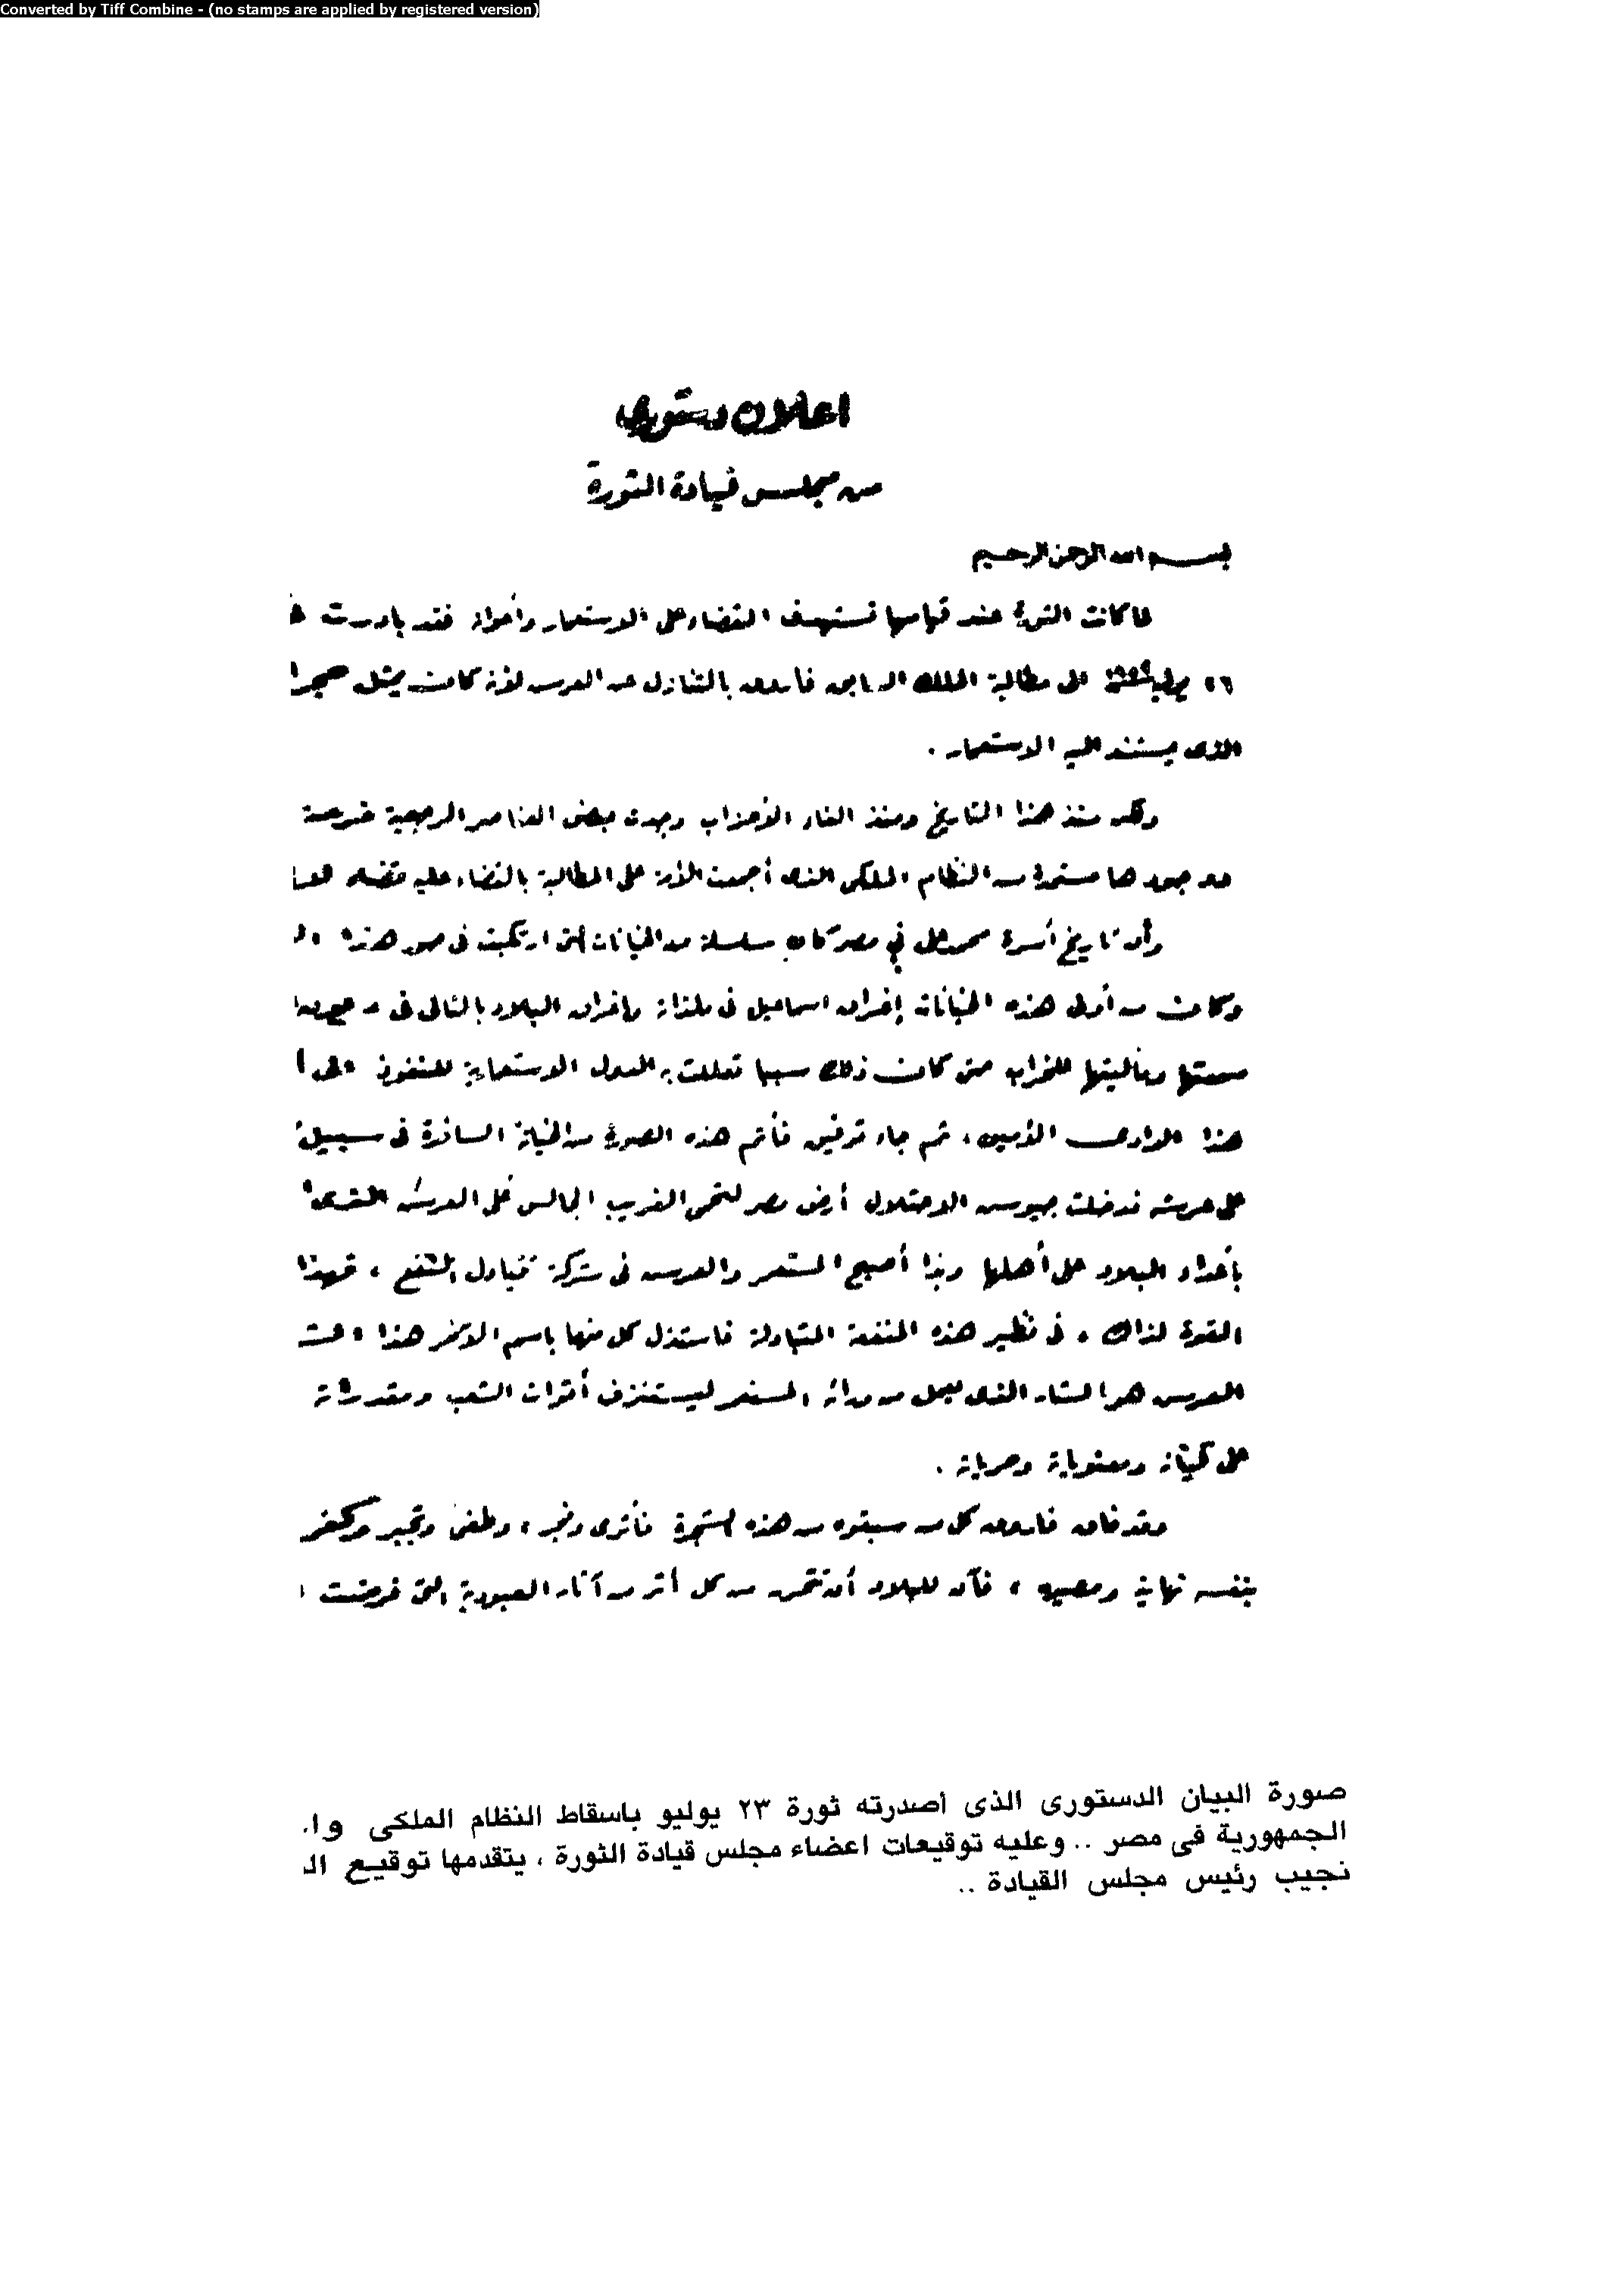 Converted by Tiff Combine - (no stamps are applied by registered version)
اعلان دستوري
من مجلس قيادة الثورة
بسم الله الرحمن الرحيم
لما كانت الثورة عند قيامها تستهدف القضاء على الاستعمار وأعوانه فقد بادرت
٢٦ يوليو ١٩٥٢ الى مطالبة الملك السابق فاروق بالتنازل عن العرش لأنه كان يمثل حجر ا
الذى يستند اليه الاستعمار .
ولكن منذ هذا التاريخ ومنذ الغاء الأحزاب وجدت بعض العناصر الرجعية فرصة
من النظام الملكى الذى أجمعت الأمة على المطالبة بالقضاء عليه قضاء
وأن تاريخ أسرة محمد على في مصر كان سلسلة من الخيانات التى ارتكبت فى حق هذا ال
وكانت من أولى هذه الخيانات إغراق اسماعيل فى ملذاته وإغراق البلاد بالتالى فى ديون
سمعتها وماليتها للخراب حتى كان ذلك سببا تعللت به الدول الاستعمارية للنفوذ الى ا
هذا الوادى الأمين ، ثم جاء توفيق فأتم هذه الصورة من الخيانة السافرة فى سبيل
على عرشه فدخلت جيوش الاحتلال أرض مصر لتحمى الغريب الجالس على العرش الذى
بأعداء البلاد على أهلها وبذا أصبح المستعمر والعرش فى شركة تتبادل النفع ، فهذا
القوة لذاك ، فى نظير هذه المنفعة المتبادلة فاستذل كل منهما باسم الآخر هذا
العرش هو الستار الذى يعمل من ورائه المستعمر ليستنزف أقوات الشعب ومقدراته
على كيانه ومعنوياته وحرياته .
وقد فاق فاروق كل من سبقوه من هذه الشجرة فأثرى وفجر ، وطغى وتجبر وكفر
بنفسه نهايته ومصيره ، فآن للبلاد أن تتحرر من كل أثر من آثار العبودية التى فرضت
صورة البيان الدستورى الذى أصدرته ثورة ٢٣ يوليو باسقاط النظام الملكى وا
الجمهورية فى مصر .. وعليه توقيعات اعضاء مجلس قيادة الثورة ، يتقدمها توقيع ال
نجيب رئيس مجلس القيادة ..